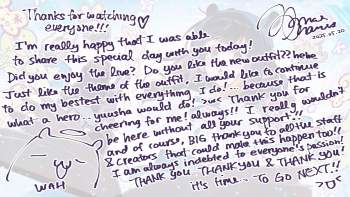 Thanks for watching
everyone!!!
2025.05.20
I'm really happy that I was able
to share this special day with you today!
Did you enjoy the live? Do you like the new outfit?? hehe
Just like the theme of the outfit, I would like to continue
to do my bestest with everything I do!... because that is
what a hero...yuusha would do! >w< Thank you for
cheering for me! always!! I really wouldn't
be here without all your support!!
and of course, BIG thank you to all the staff
& creators that could make this happen too!!
I am always indebted to everyone's passion!
THANK YOU, THANK YOU & THANK YOU!
it's time.. To GO NEXT!!
WAH